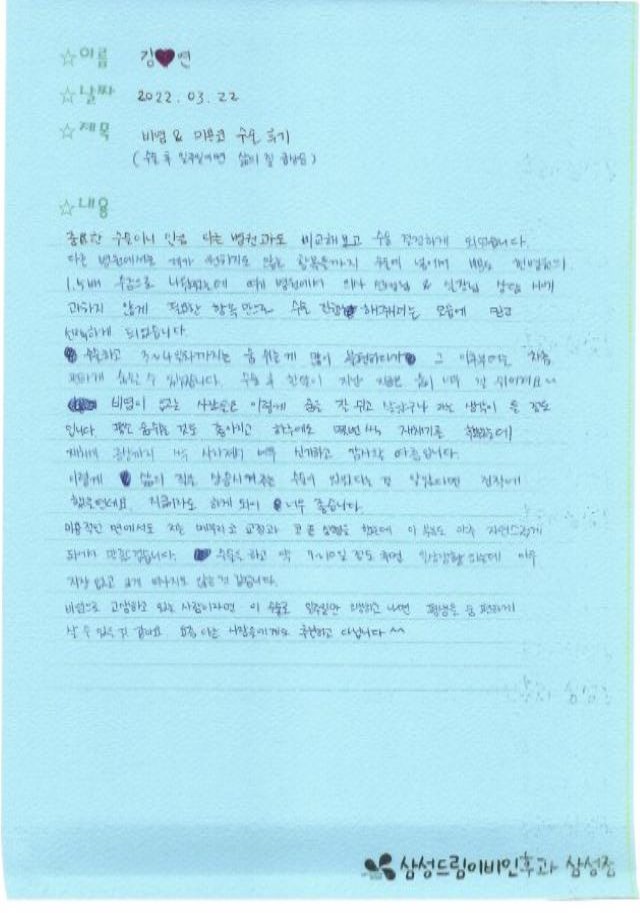 ☆이름 김♥연
☆날짜 2022.03.22
☆제목 비염 & 미용코 수술 후기
(수술 후 일주일이면 삶의 질 급상승)
☆내용
중요한 수술이니 만큼 다른 병원과도 비교해보고 수술 결정하게 되었습니다.
다른 병원에서는 제가 원하지도 않는 항목들까지 수술에 넣어서
1.5배 수준으로 나왔었는데 여기 병원에서 의사 선생님 & 실장님 상담 시에
과하지 않게 필요한 항목만으로 수술 진행 해주려는 모습에 믿고
선택하게 되었습니다.
수술하고 3~4일차까지는 숨 쉬는게 많이 불편하다가 그 이후부터는 차츰
편하게 숨쉴 수 있었습니다. 수술 후 한달이 지난 지금은 숨이 너무 잘 쉬어져요~
비염이 없는 사람들은 이렇게 숨을 잘 쉬고 살았구나 라는 생각이 든 정도
입니다 평소 숨쉬는 것도 좋아지고 하루에도 몇번씩 재채기를 했었는데
재채기 증상까지 싹 사라져서 너무 신기하고 감사할 따름입니다.
이렇게 삶의 질을 상승시켜주는 수술이 있었다는 걸 알았다면 진작에
했을텐데요 지금이라도 하게 되어 너무 좋습니다.
미용적인 면에서도 저는 매부리코 교정과 코 끝 성형을 했는데 이 부분도 아주 자연스럽게
되어서 만족스럽습니다. 수술을 하고 약 7~10일 정도 후면 일상생활 하는데 아무
지장 없고 크게 티나지도 않는 것 같습니다.
비염으로 고생하고 있는 사람이라면 이 수술로 일주일만 고생하고 나면 평생을 숨 편하게
살 수 있을 것 같아요 요즘 다른 사람들에게도 추천하고 다닙니다 ^^
삼성드림이비인후과 삼성점